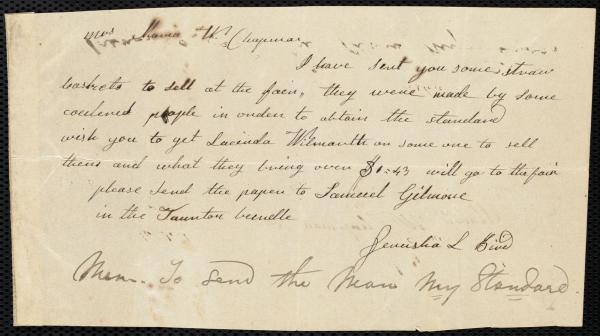 Mrs Maria W. Chapman
I have sent you some straw
baskets to sell at the fair, they were made by some
coulered people in order to obtain the standard
wish you to get Lucinda Wilmarth or some one to sell
them and what they bring over $1=43 will go to the fair
please send the paper to Samuel Gilmore
in the Taunton bundle
Jerusha L Bird
Mem. To send the Man My Standard.